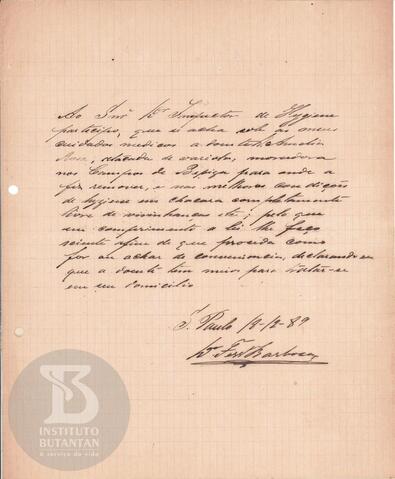 Ao Snr. Dr. Inspector de Hygiene
participo, que se acha sob os meus
cuidados medicos a doente Amelia
Rosa, atacada de variola, moradora
nos Campos do Bexiga para onde a
fiz remover, e nas melhores condições
de hygiene em chacara completamente
livre de visinhanças etc; pelo que
em cumprimento a lei lhe faço
sciente afim de que proceda como
for ou achar de conveniencia, declarando
que a doente tem meios para tratar-se
em seu domicilio
S. Paulo 12-12-89
Dr. Barbosa
INSTITUTO
BUTANTAN
A serviço da vida